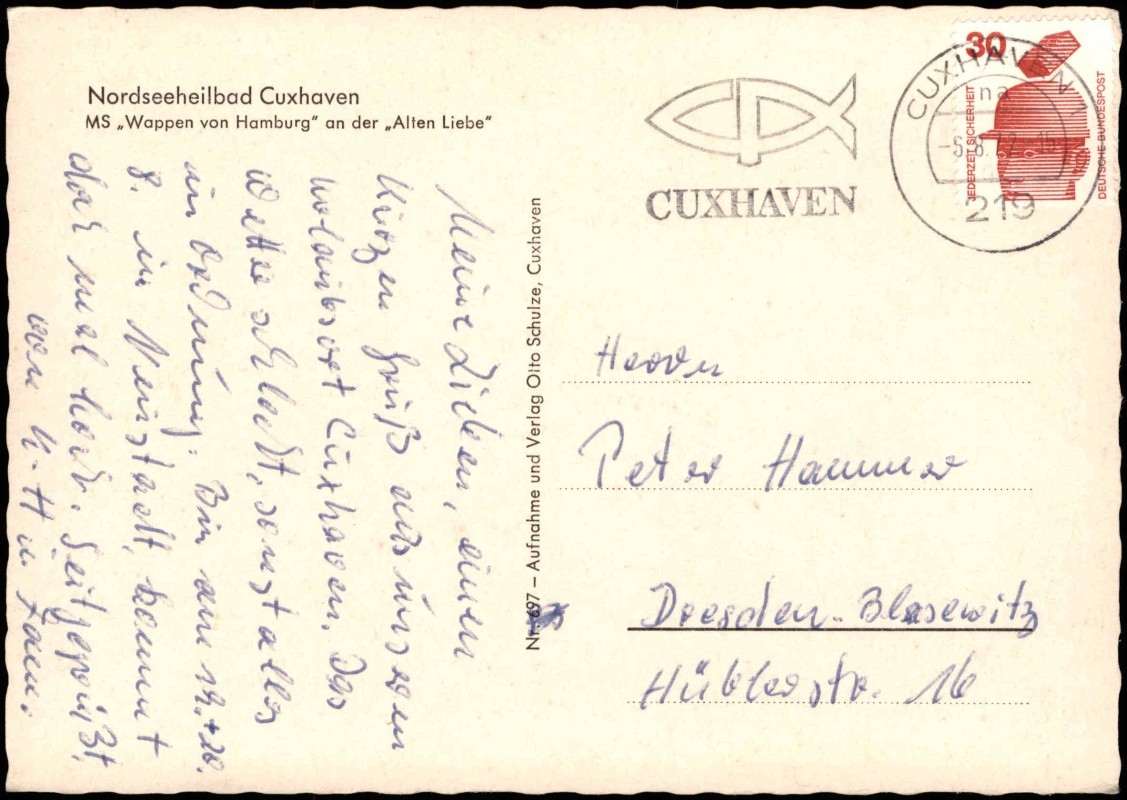 Nordseeheilbad Cuxhaven
MS „Wappen von Hamburg" an der „Alten Liebe"
Meine Lieben, einen
kurzen Gruß aus unserem
Urlaubsort Cuxhaven. Das
Wetter schlecht, sonst alles
in Ordnung. Bin am 19. + 20.
8. in Neustadt, kommt
doch mal hoch. Seit gegrüßt
von K. H u. Fam.
Nr. 697 – Aufnahme und Verlag Otto Schulze, Cuxhaven
CUXHAVEN
CUXHAVEN 1
na
-5.8.72-15
219
30
JEDERZEIT SICHERHEIT
DEUTSCHE BUNDESPOST
Herrn
Peter Hammer
Dresden-Blasewitz
Hüblerstr. 16